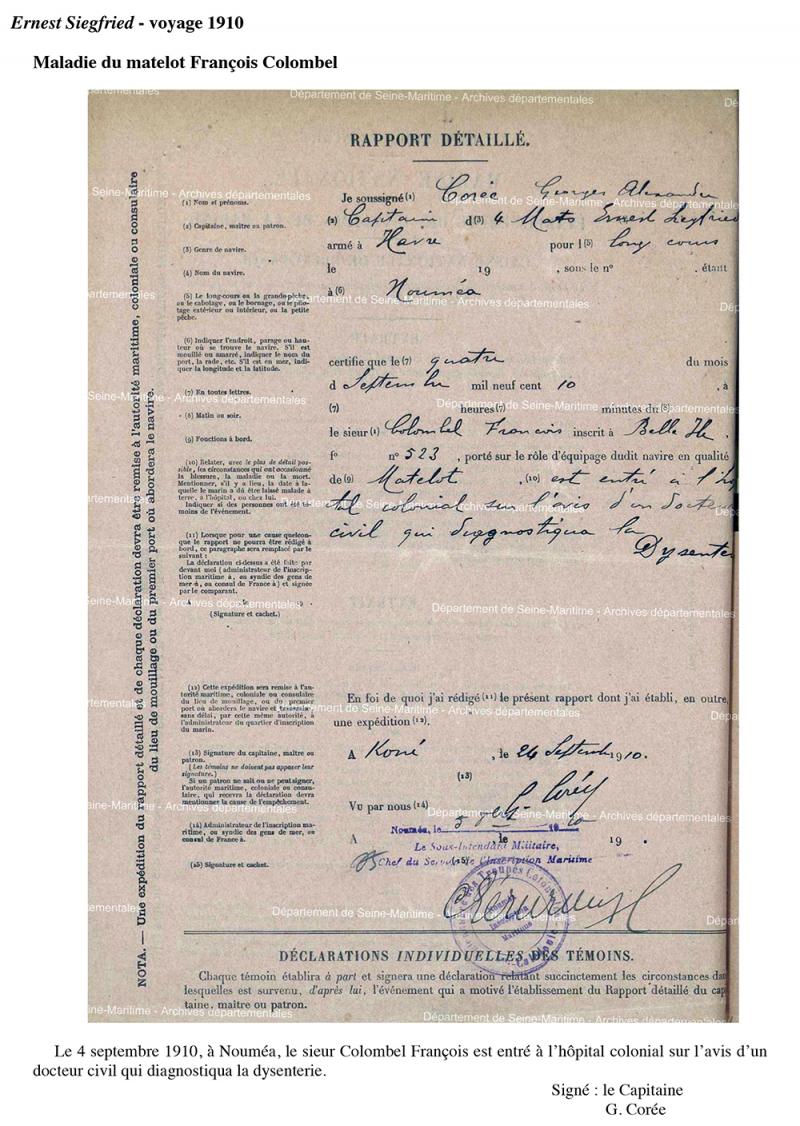 Ernest Siegfried - voyage 1910
Maladie du matelot François Colombel
Département de Seine-Maritime - Archives départementales
RAPPORT DÉTAILLÉ.
NOTA. — Une expédition du rapport détaillé et de chaque déclaration devra être remise à l'autorité maritime, coloniale ou consulaire
du lieu de mouillage ou du premier port où abordera le navire.
(1) Nom et prénoms.
(2) Capitaine, maître ou patron.
(3) Genre de navire.
(4) Nom du navire.
(5) Le long-cours ou la grande pêche,
ou le cabotage, ou le bornage, ou le pilo-
tage extérieur ou intérieur, ou la petite
pêche.
(6) Indiquer l'endroit, parage ou hau-
teur où se trouve le navire. S'il est
mouillé ou amarré, indiquer le nom du
port, la rade, etc. S'il est en mer, indi-
quer la longitude et la latitude.
(7) En toutes lettres.
(8) Matin ou soir.
(9) Fonctions à bord.
(10) Relater, avec le plus de détail pos-
sible, les circonstances qui ont occasionné
la blessure, la maladie ou la mort.
Mentionner, s'il y a lieu, la date à la-
quelle le marin a dû être laissé malade à
terre, à l'hôpital, ou chez lui.
Indiquer si des personnes ont été té-
moins de l'événement.
(11) Lorsque pour une cause quelcon-
que le rapport ne pourra être rédigé à
bord, ce paragraphe sera remplacé par le
suivant :
La déclaration ci-dessus a été faite par
devant moi (administrateur de l'inscrip-
tion maritime à, ou syndic des gens de
mer à, ou consul de France à) et signée
par le comparant.
(Signature et cachet.)
(12) Cette expédition sera remise à l'au-
torité maritime, coloniale ou consulaire
du lieu de mouillage, ou du premier
port où abordera le navire et transmise
sans délai, par cette même autorité, à
l'administrateur du quartier d'inscription
du marin.
(13) Signature du capitaine, maître ou
patron.
(Les témoins ne doivent pas apposer leur
signature.)
Si un patron ne sait ou ne peut signer,
l'autorité maritime, coloniale ou consu-
laire, qui recevra la déclaration devra
mentionner la cause de l'empêchement.
(14) Administrateur de l'inscription ma-
ritime, ou syndic des gens de mer, ou
consul de France à.
(15) Signature et cachet.
Je soussigné (1) Corée Georges Alexandre
(2) Capitain d (3) 4 Mats Ernest Siegfried
armé à Havre pour l (5) long cours
le 19 , sous le n° , étant
à (6) Nouméa
certifie que le (7) quatre du mois
d Septembre mil neuf cent 10 , à
(7) heures (7) minutes du (8)
le sieur (1) Colombel François inscrit à Belle Ile
f° n° 523 , porté sur le rôle d'équipage dudit navire en qualité
de (9) Matelot , (10) est entré à l'hô
tal colonial sur l'avis d'un docteur
civil qui diagnostiqua la
Dysente
En foi de quoi j'ai rédigé (11) le présent rapport dont j'ai établi, en outre,
une expédition (12).
A Koné , le 24 Septembre 1910.
(13)
G. Corée
Vu par nous (14)
Nouméa, le 19 10
A , le 19 .
Le Sous-Intendant Militaire,
Chef du Service de l'Inscription Maritime
(15)
Troupes Coloniales
Nouméa
Inscription
Maritime
DÉCLARATIONS INDIVIDUELLES DES TÉMOINS.
Chaque témoin établira à part et signera une déclaration relatant succinctement les circonstances dan
lesquelles est survenu, d'après lui, l'événement qui a motivé l'établissement du Rapport détaillé du cap
taine, maître ou patron.
Le 4 septembre 1910, à Nouméa, le sieur Colombel François est entré à l'hôpital colonial sur l'avis d'un
docteur civil qui diagnostiqua la dysenterie.
Signé : le Capitaine
G. Corée